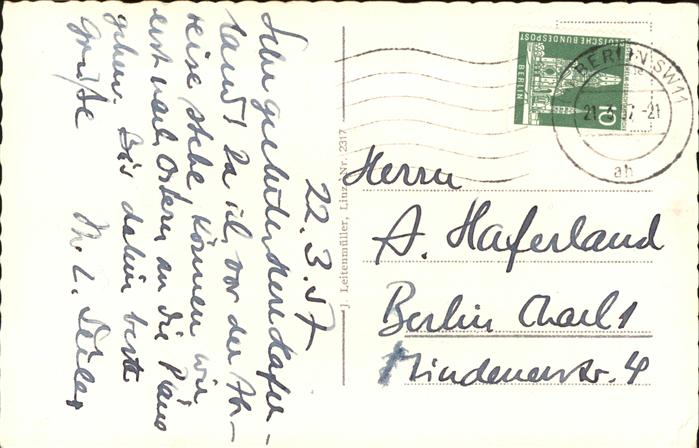 22.3.57
Sehr geehrter Herr Hafer-
land! Da ich vor der Ab-
reise stehe können wir
erst nach Ostern an die Pläne
gehen. Bis dahin beste
Grüße
J. Leitenmüller, Linz, Nr. 2317
DEUTSCHE BUNDESPOST
BERLIN
10
BERLIN SW11
21
ah
Herrn
A. Haferland
Berlin Charl 1
Mindenerstr. 4